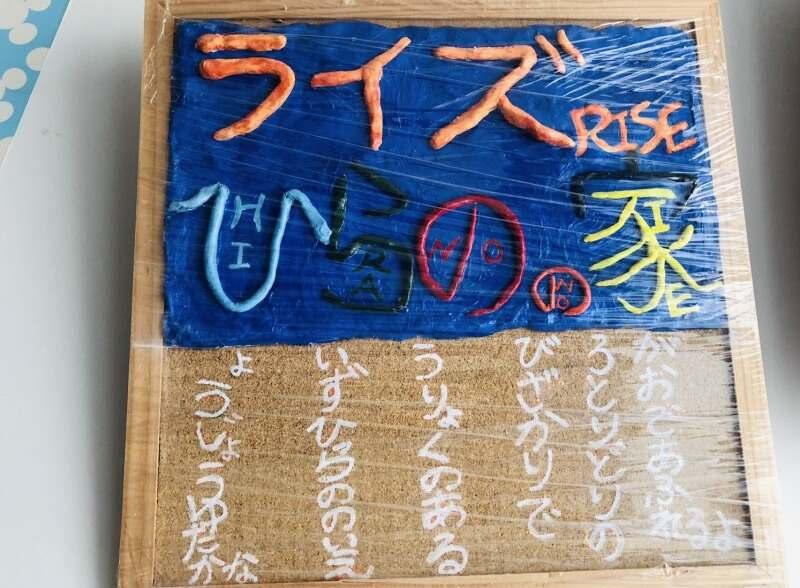 ライズ
RISE
ひらのの家
HI RA NO NO IE
がおであふれるよ
ろとりどりの
びざかりで
うりょくのある
いずひらののいえ
ょうじょうゆたかな